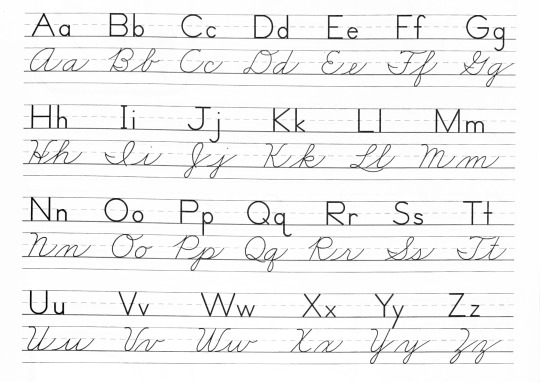 Aa Bb Cc Dd Ee Ff Gg
Aa Bb Cc Dd Ee Ff Gg
Hh Ii Jj Kk Ll Mm
Hh Ii Jj Kk Ll Mm
Nn Oo Pp Qq Rr Ss Tt
Nn Oo Pp Qq Rr Ss Tt
Uu Vv Ww Xx Yy Zz
Uu Vv Ww Xx Yy Zz